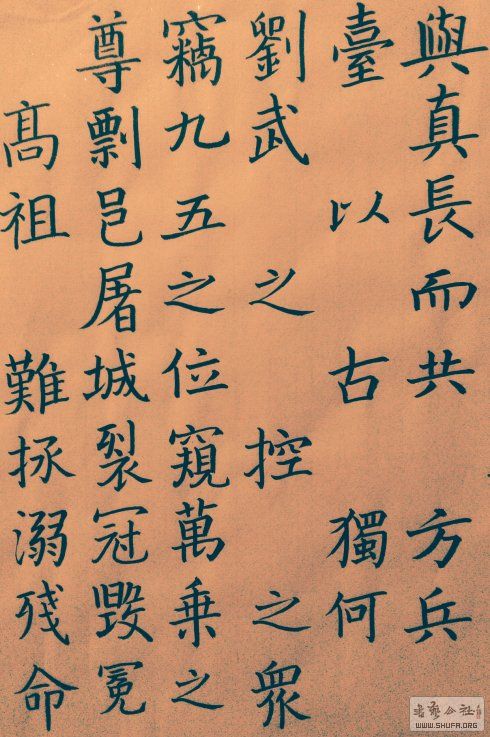 與真長而共 方兵
臺 以 古 獨何
劉武 之 控 之眾
竊九五之位窺萬乗之
尊剽邑屠城裂冠毀冕
髙祖 難拯溺残命
WWW.SHUFA.ORG